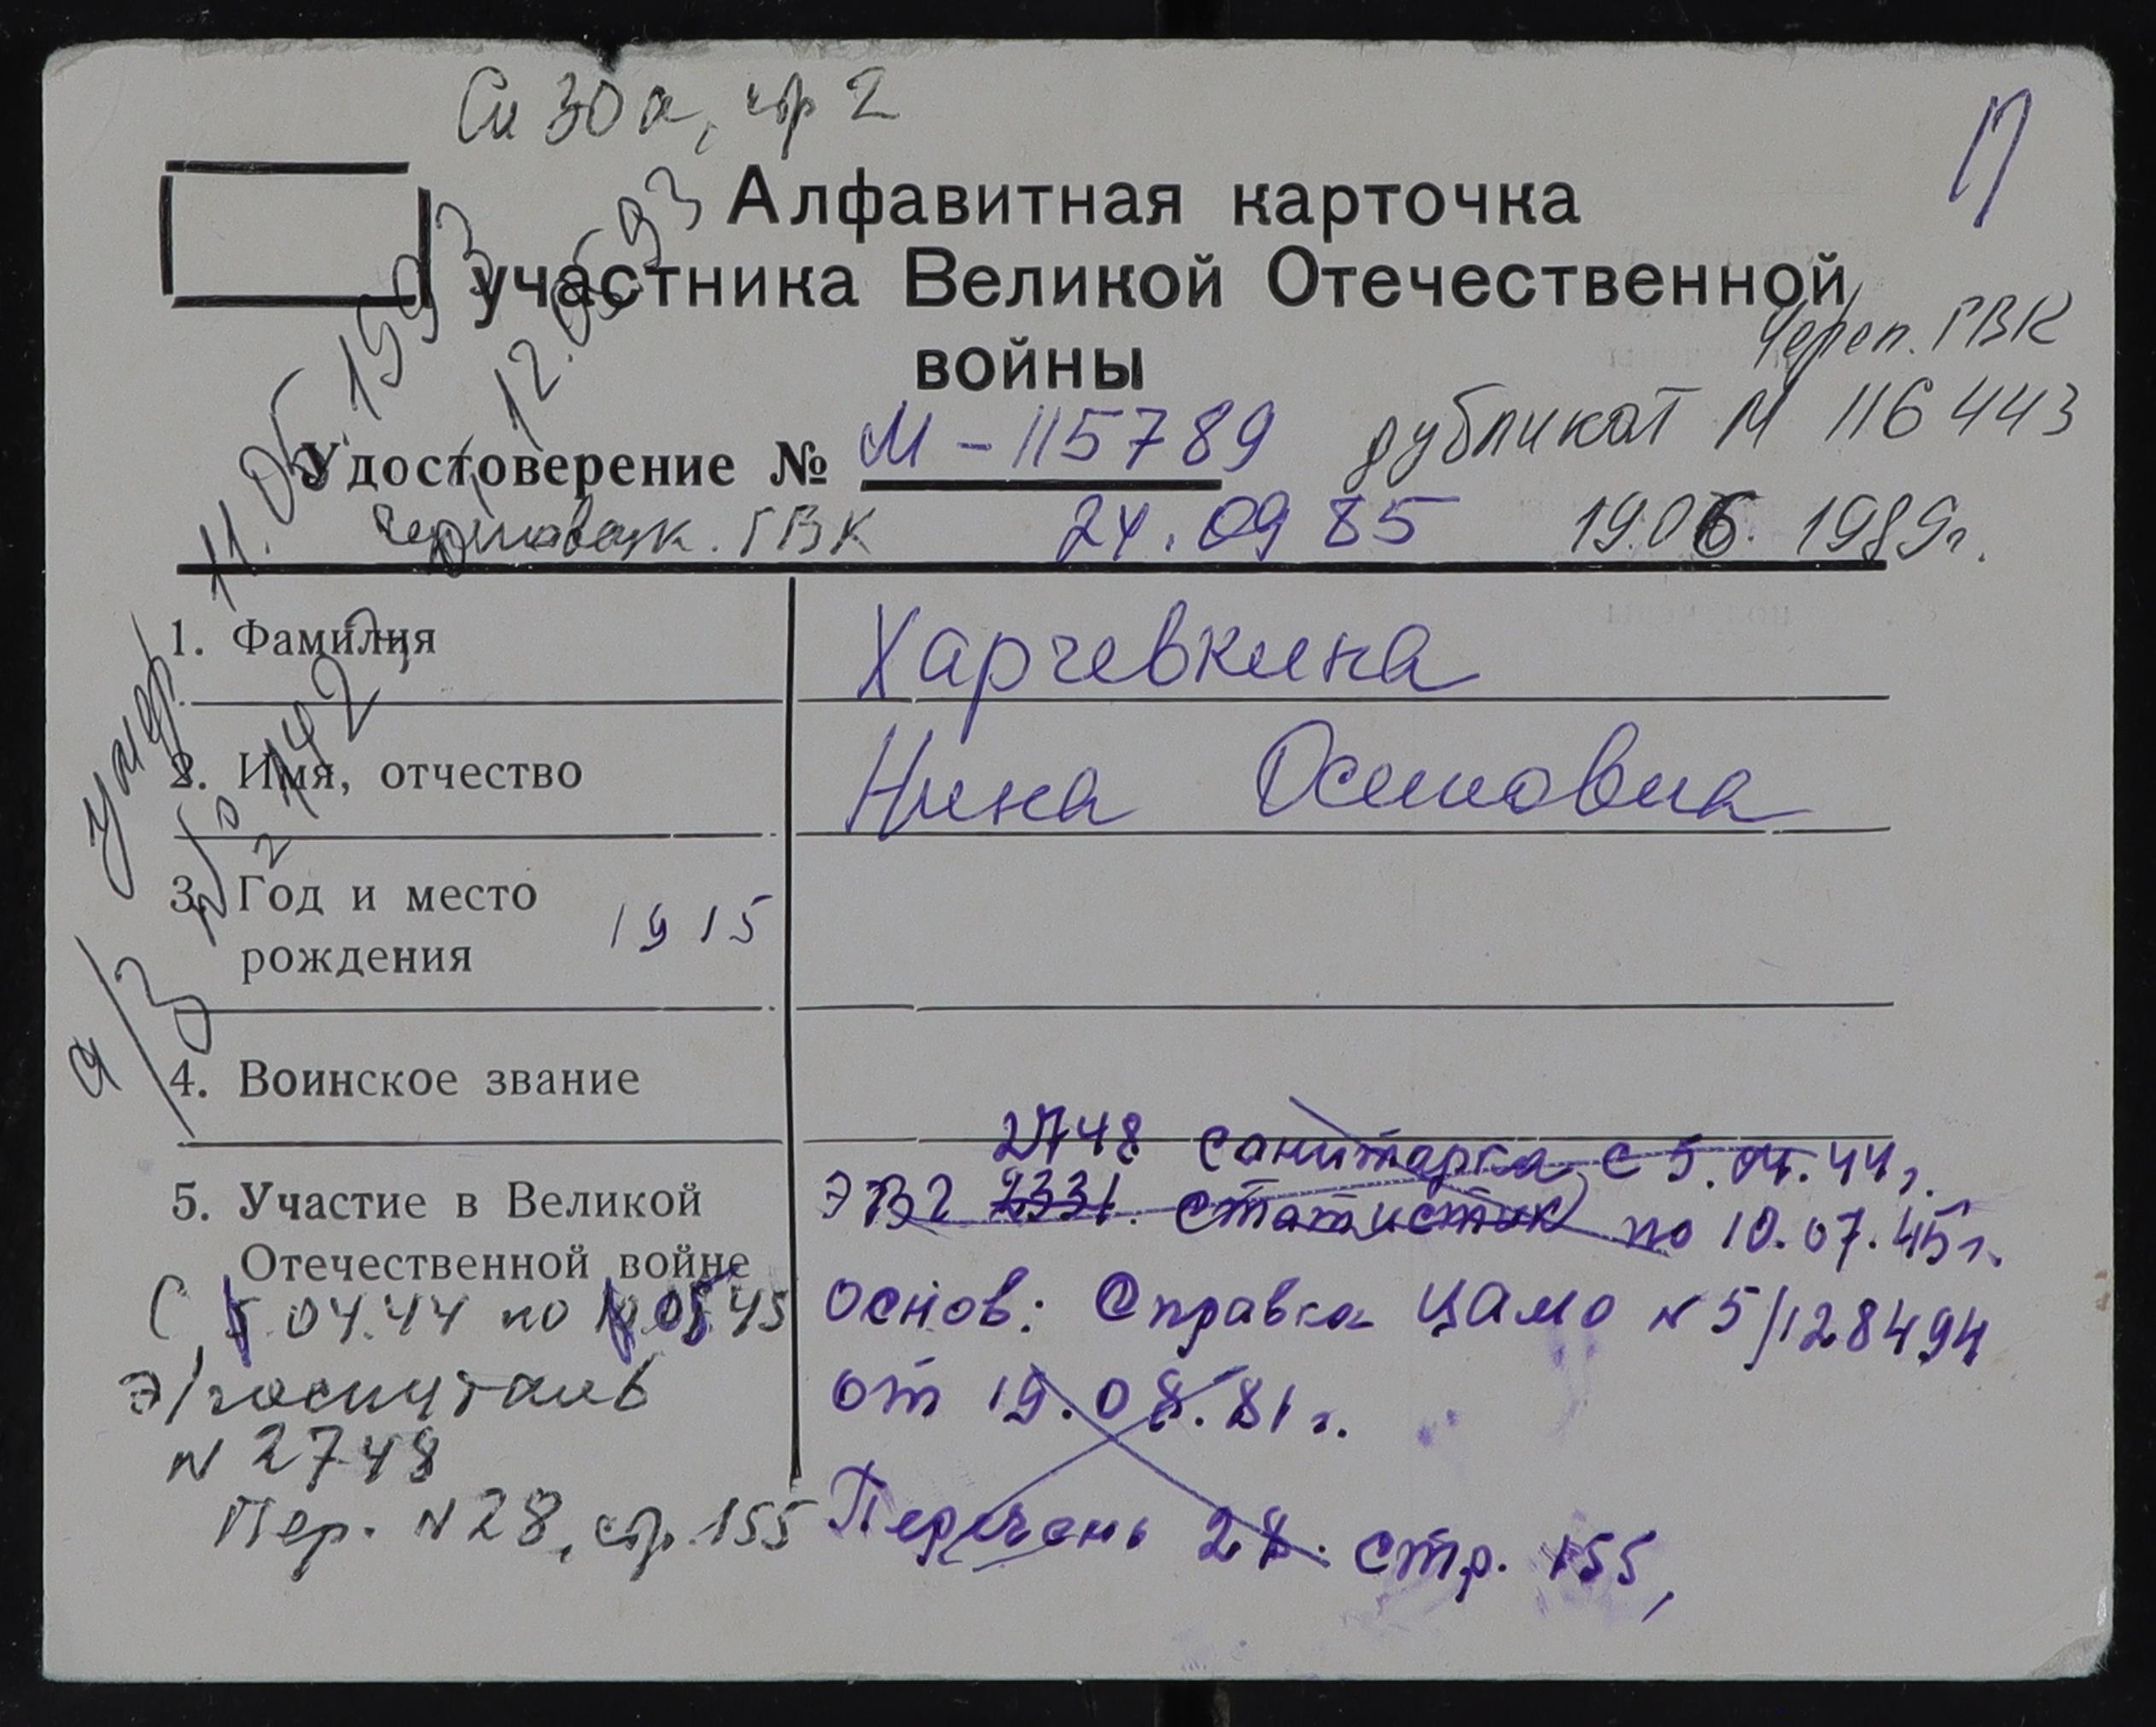 Сп 30а, стр 2
П
Алфавитная карточка
участника Великой Отечественной
войны
Череп. ГВК
Удостоверение № М-115789 дубликат М 116443
Череповецк. ГВК 24.09 85 19.06. 1989г.
умер 11.05.1993
а/з № 2742 12.05.93
1. Фамилия Харчевкина
2. Имя, отчество Нина Осиповна
3. Год и место 1915
рождения
4. Воинское звание
2748 санитарка с 5.04.44г.
5. Участие в Великой ЭВГ 2331. статистик по 10.07.45г.
Отечественной войне
С 5.04.44 по 05.45 основ: Справка ЦАМО № 5/128494
э/госпиталь от 19.08.81г.
№ 2748
Пер. № 28, стр. 155 Перечень 28. стр. 155,